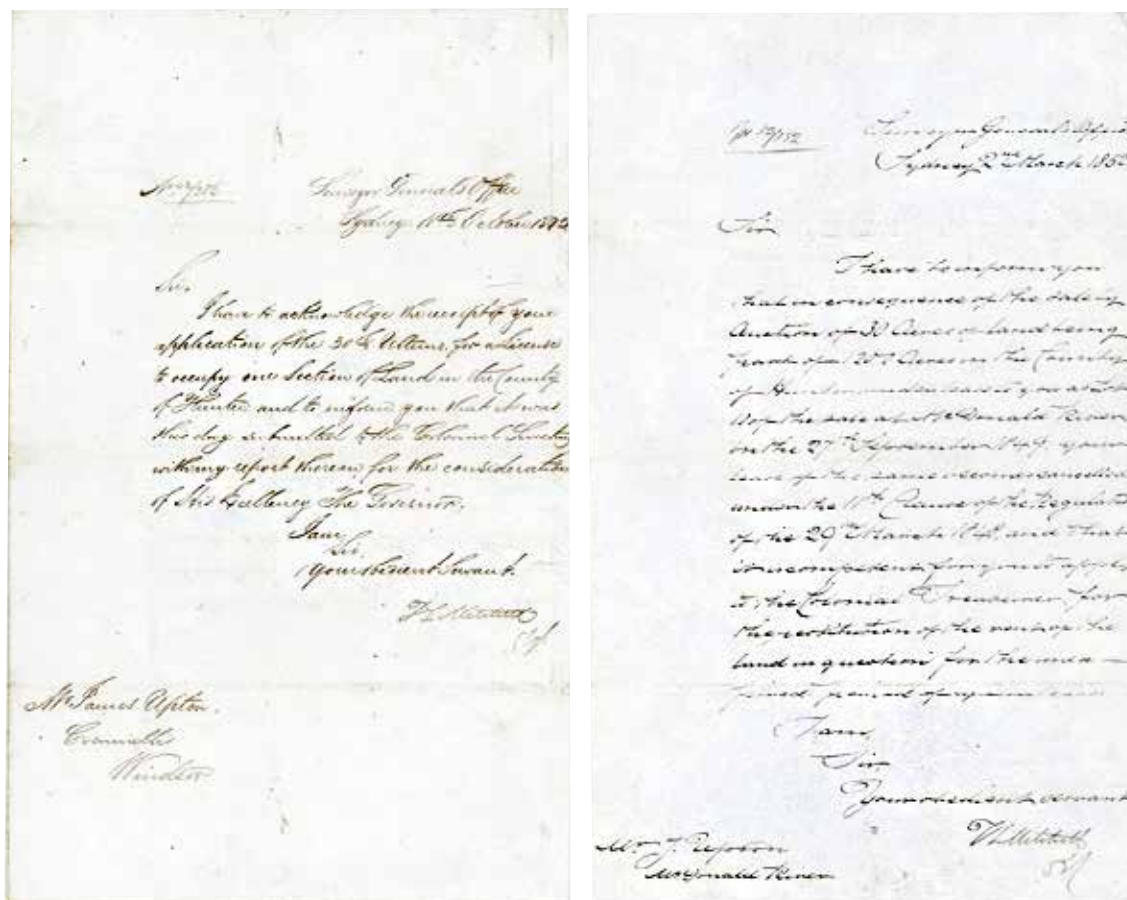 Surveyor General's Office
Sydney 11th October 1842
Sir,
I have to acknowledge the receipt of your
application of the 30th Ultimo, for a License
to occupy one Section of Land in the County
of Hunter and to inform you that it was
this day submitted to the Colonial Secretary
with my report thereon for the consideration
of His Excellency The Governor.
I am,
Sir,
your obedient Servant.
T L Mitchell
SG
Mr James Upton.
Windsor
Surveyor General's Office
Sydney 2nd March 185
Sir
I have to inform you
that in consequence of the sale by
Auction of 30 Acres of land being
part of Acres in the County
of Hunter leased to you as Lot
of the sale at McDonald River
on the 27th 1849, your
lease of the same becomes cancelled
under the 11th Clause of the Regulations
of the 29th March 1848, and that
it is competent for you to apply
to the Colonial Treasurer for
the restitution of the rent of the
land in question for the unex-
pired period of
I am,
Sir,
Your obedient servant
T L Mitchell
SG
Mr J. Upton
McDonald River